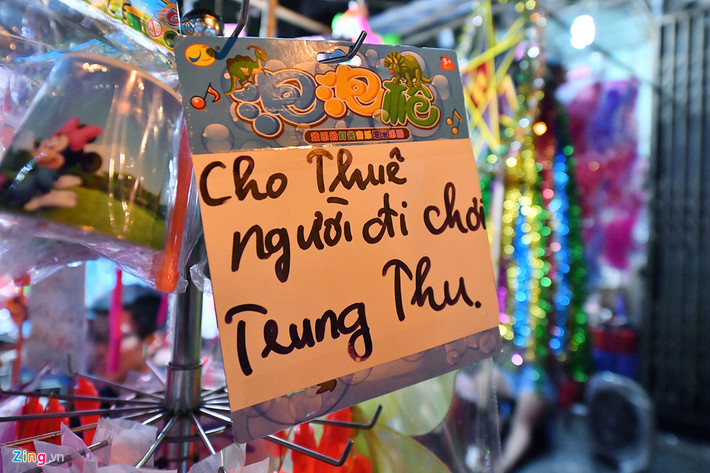 泡泡枪
Cho Thuê
người đi chơi
Trung Thu.
Zing.vn